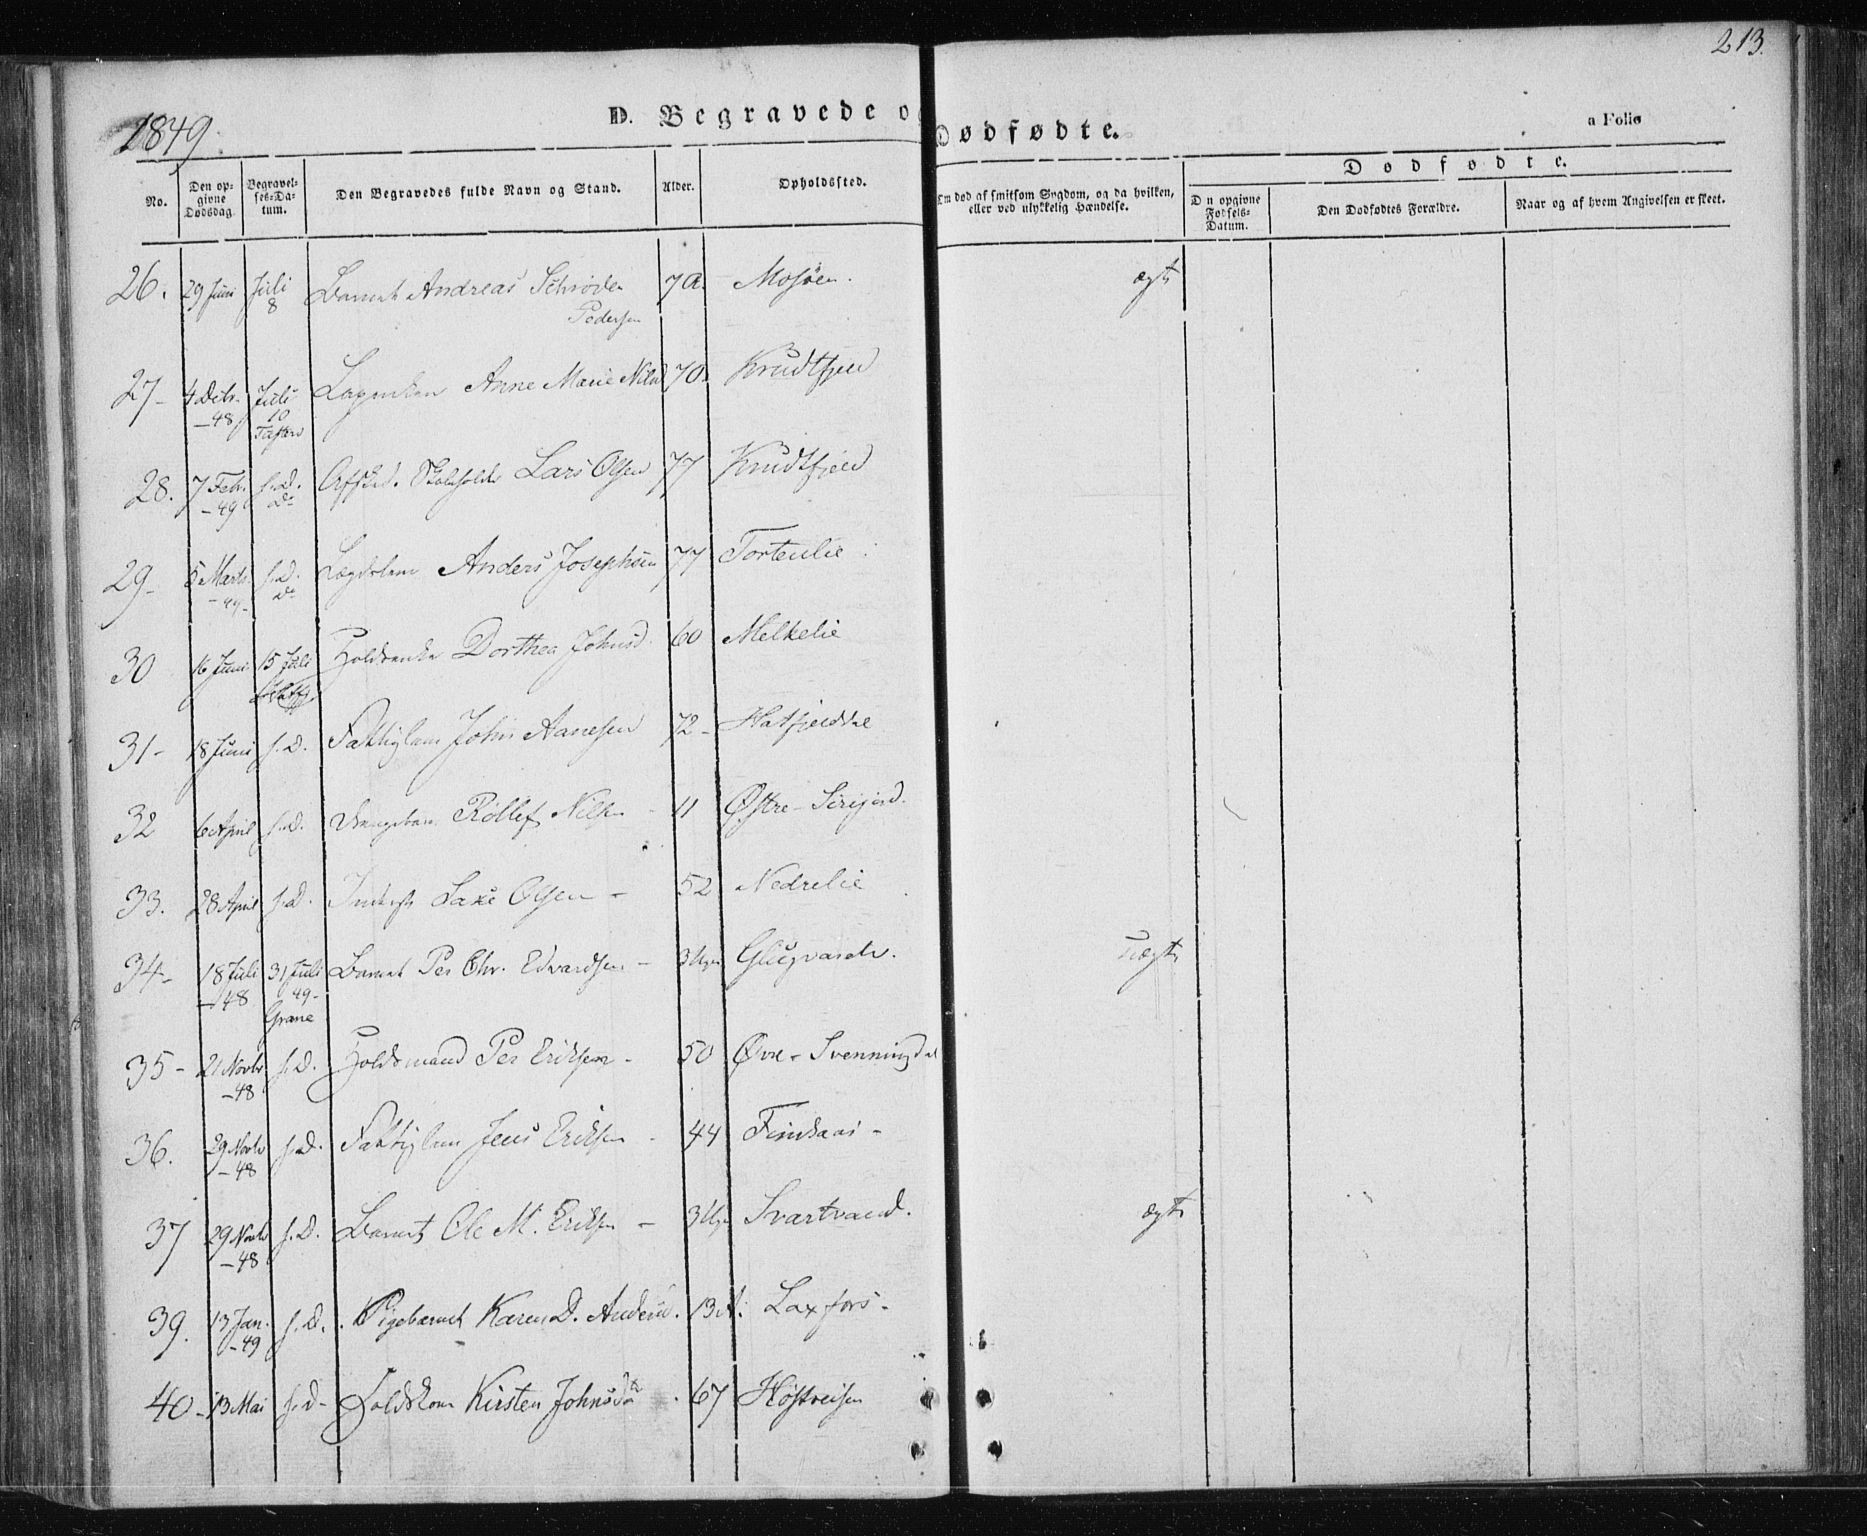 213.
1849.
D. Begravede o
Dødfødte.
a Folio
No.
Den opgivne Dødsdag.
Begravelses-Datum.
Den Begravedes fulde Navn og Stand.
Alder.
Opholdssted.
Om død af smitsom Sygdom, og da hvilken, eller ved ulykkelig Hændelse.
Dødfødte.
D n opgivne Fødsels-Datum.
Den Dødfødtes Forældre.
Naar og af hvem Angivelsen er skeet.
26. 29 Juni Juli 8 Barnet Andreas Schrøder Pedersen 7 A. Mosøen. ægte
27- 4 Decbr. -48 Juli 10 Anne Marie Nilsd 70. Krudtfjeld
28. 7 Febr. -49 s.D. Do Afsked. Lars Olsen 77 Krudtfjeld
29- 5 Marts -49- s.D. Do Lægdslem Anders Josephsen 77 Tortenlie
30 16 Juni 15 Juli Dorthea Johnsd. 60 Melkelie
31- 18 Juni s.D. Fattiglem John Aanesen 72- Hatfjelddal
32 6 April s.D. Rollef Nilsen - 11 Østre-
33. 28 April s.D. Inderst Saxe Olsen - 52 Nedrelie
34- 18 Juli -48 31 Juli 49- Grane Barnet Per Chr. Edvardsen - 3 Uger Glugvasdr. uægte
35- 21 Novbr -48 s.D. Per Eriksen - 50 Øvre-Svenningdal
36. 29 Novbr -48 s.D. Fattiglem Jens Eriksen - 44 -
37 29 Novbr -48 s.D. Barnet Ole M. Eriksen - 3 Uger Svartvand. ægte
39. 13 Jan. -49 s.D. Pigebarnet Karen D. Andersd. 13 A. Laxfors-
40- 13 Mai s.D- Kirsten Johnsdr. 67